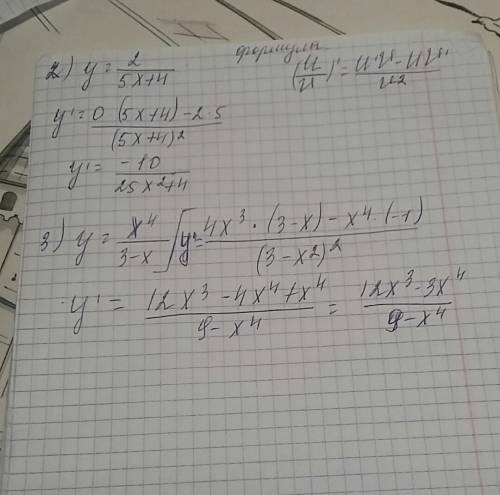 формулы
2) y = 2/(5x+4) (u/v)' = (u'v - uv')/v2
y' = (0 (5x+4) - 2·5)/(5x+4)²
y' = -10/(25x²+4)
3) y = x⁴/(3-x) y' = (4x³ · (3-x) - x⁴·(-1))/(3-x2)²
y' = (12x³ - 4x⁴ + x⁴)/(9-x⁴) = (12x³ - 3x⁴)/(9-x⁴)